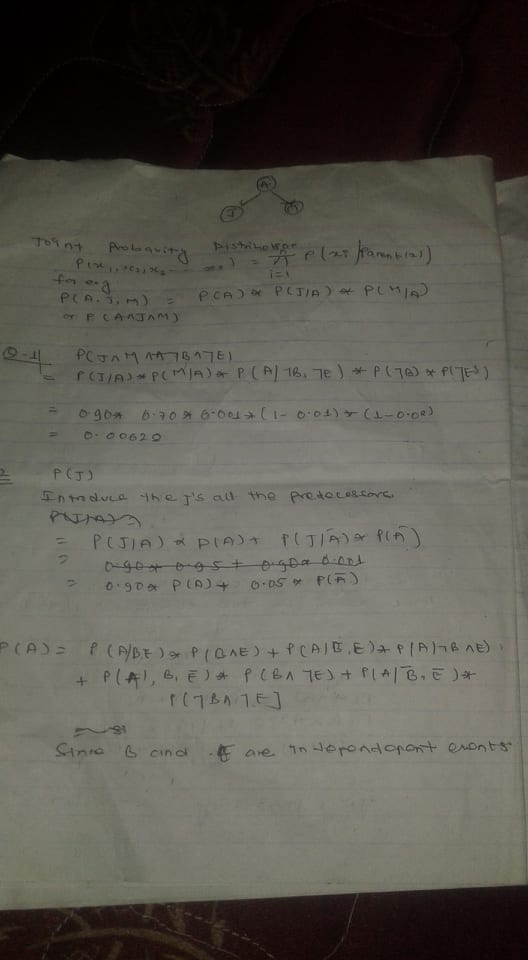 A
J M
Joint Probability Distribution
P(x1, x2, x3 ..... xn) = π i=1 n P(xi/Parent(xi)
for e.g
P(A, J, M) = P(A) * P(J/A) * P(M/A)
or P(A∧J∧M)
Q-1/ P(J∧M∧A¬B∧¬E)
= P(J/A) * P(M/A) * P(A/¬B, ¬E) * P(¬B) * P(¬E)
= 0.90 * 0.70 * 0.001 * (1-0.01) * (1-0.02)
= 0.00620
2 P(J)
Introduce the J's all the predecessors
P(J/A)
= P(J/A) * P(A) + P(J/Ā) * P(Ā)
= 0.90 * 0.95 + 0.90 * 0.001
= 0.90 * P(A) + 0.05 * P(Ā)
P(A) = P(A/B,E) * P(B∧E) + P(A/B̅,E) * P(A/¬B∧E)
+ P(A/, B, E̅) * P(B∧¬E) + P(A/B̅, E̅) *
P(¬B∧¬E]
Since B and E are independent events